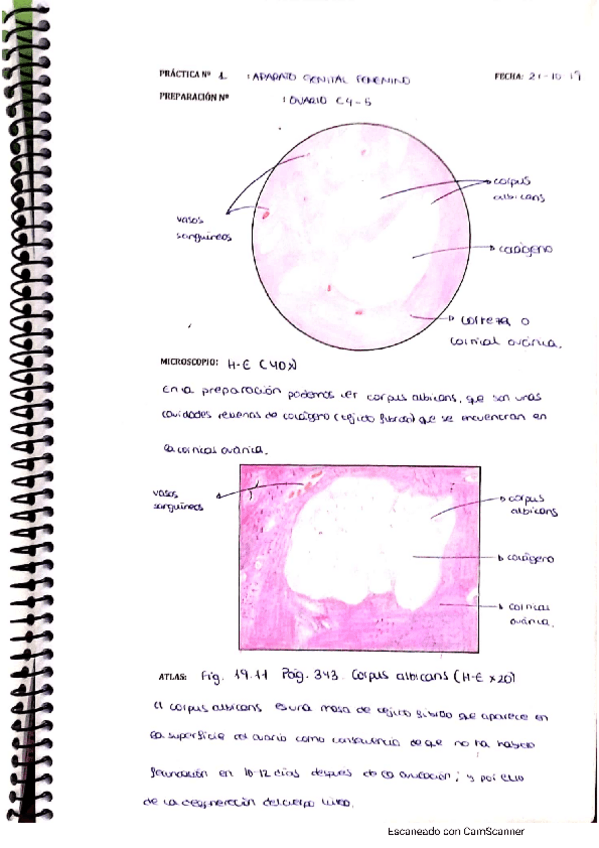 PRÁCTICA Nº 1 : APARATO GENITAL FEMENINO FECHA: 21-10-19
PREPARACIÓN Nº : OVARIO C4-5
corpus
albicans
vasos
sanguíneos
colágeno
corteza o
cortical ovárica.
MICROSCOPIO: H-E (40x)
En la preparación podemos ver corpus albicans, que son unas
cavidades rellenas de colágeno (tejido fibroso) que se encuentran en
la cortical ovárica.
vasos
sanguíneos
corpus
albicans
colágeno
cortical
ovárica.
ATLAS: Fig. 19.11 Pág. 343. Corpus albicans (H-E x20)
El corpus albicans es una masa de tejido fibroso que aparece en
la superficie del ovario como consecuencia de que no ha habido
fecundación en 10-12 días después de la ovulación; y por ello
de la degeneración del cuerpo lúteo.
Escaneado con CamScanner